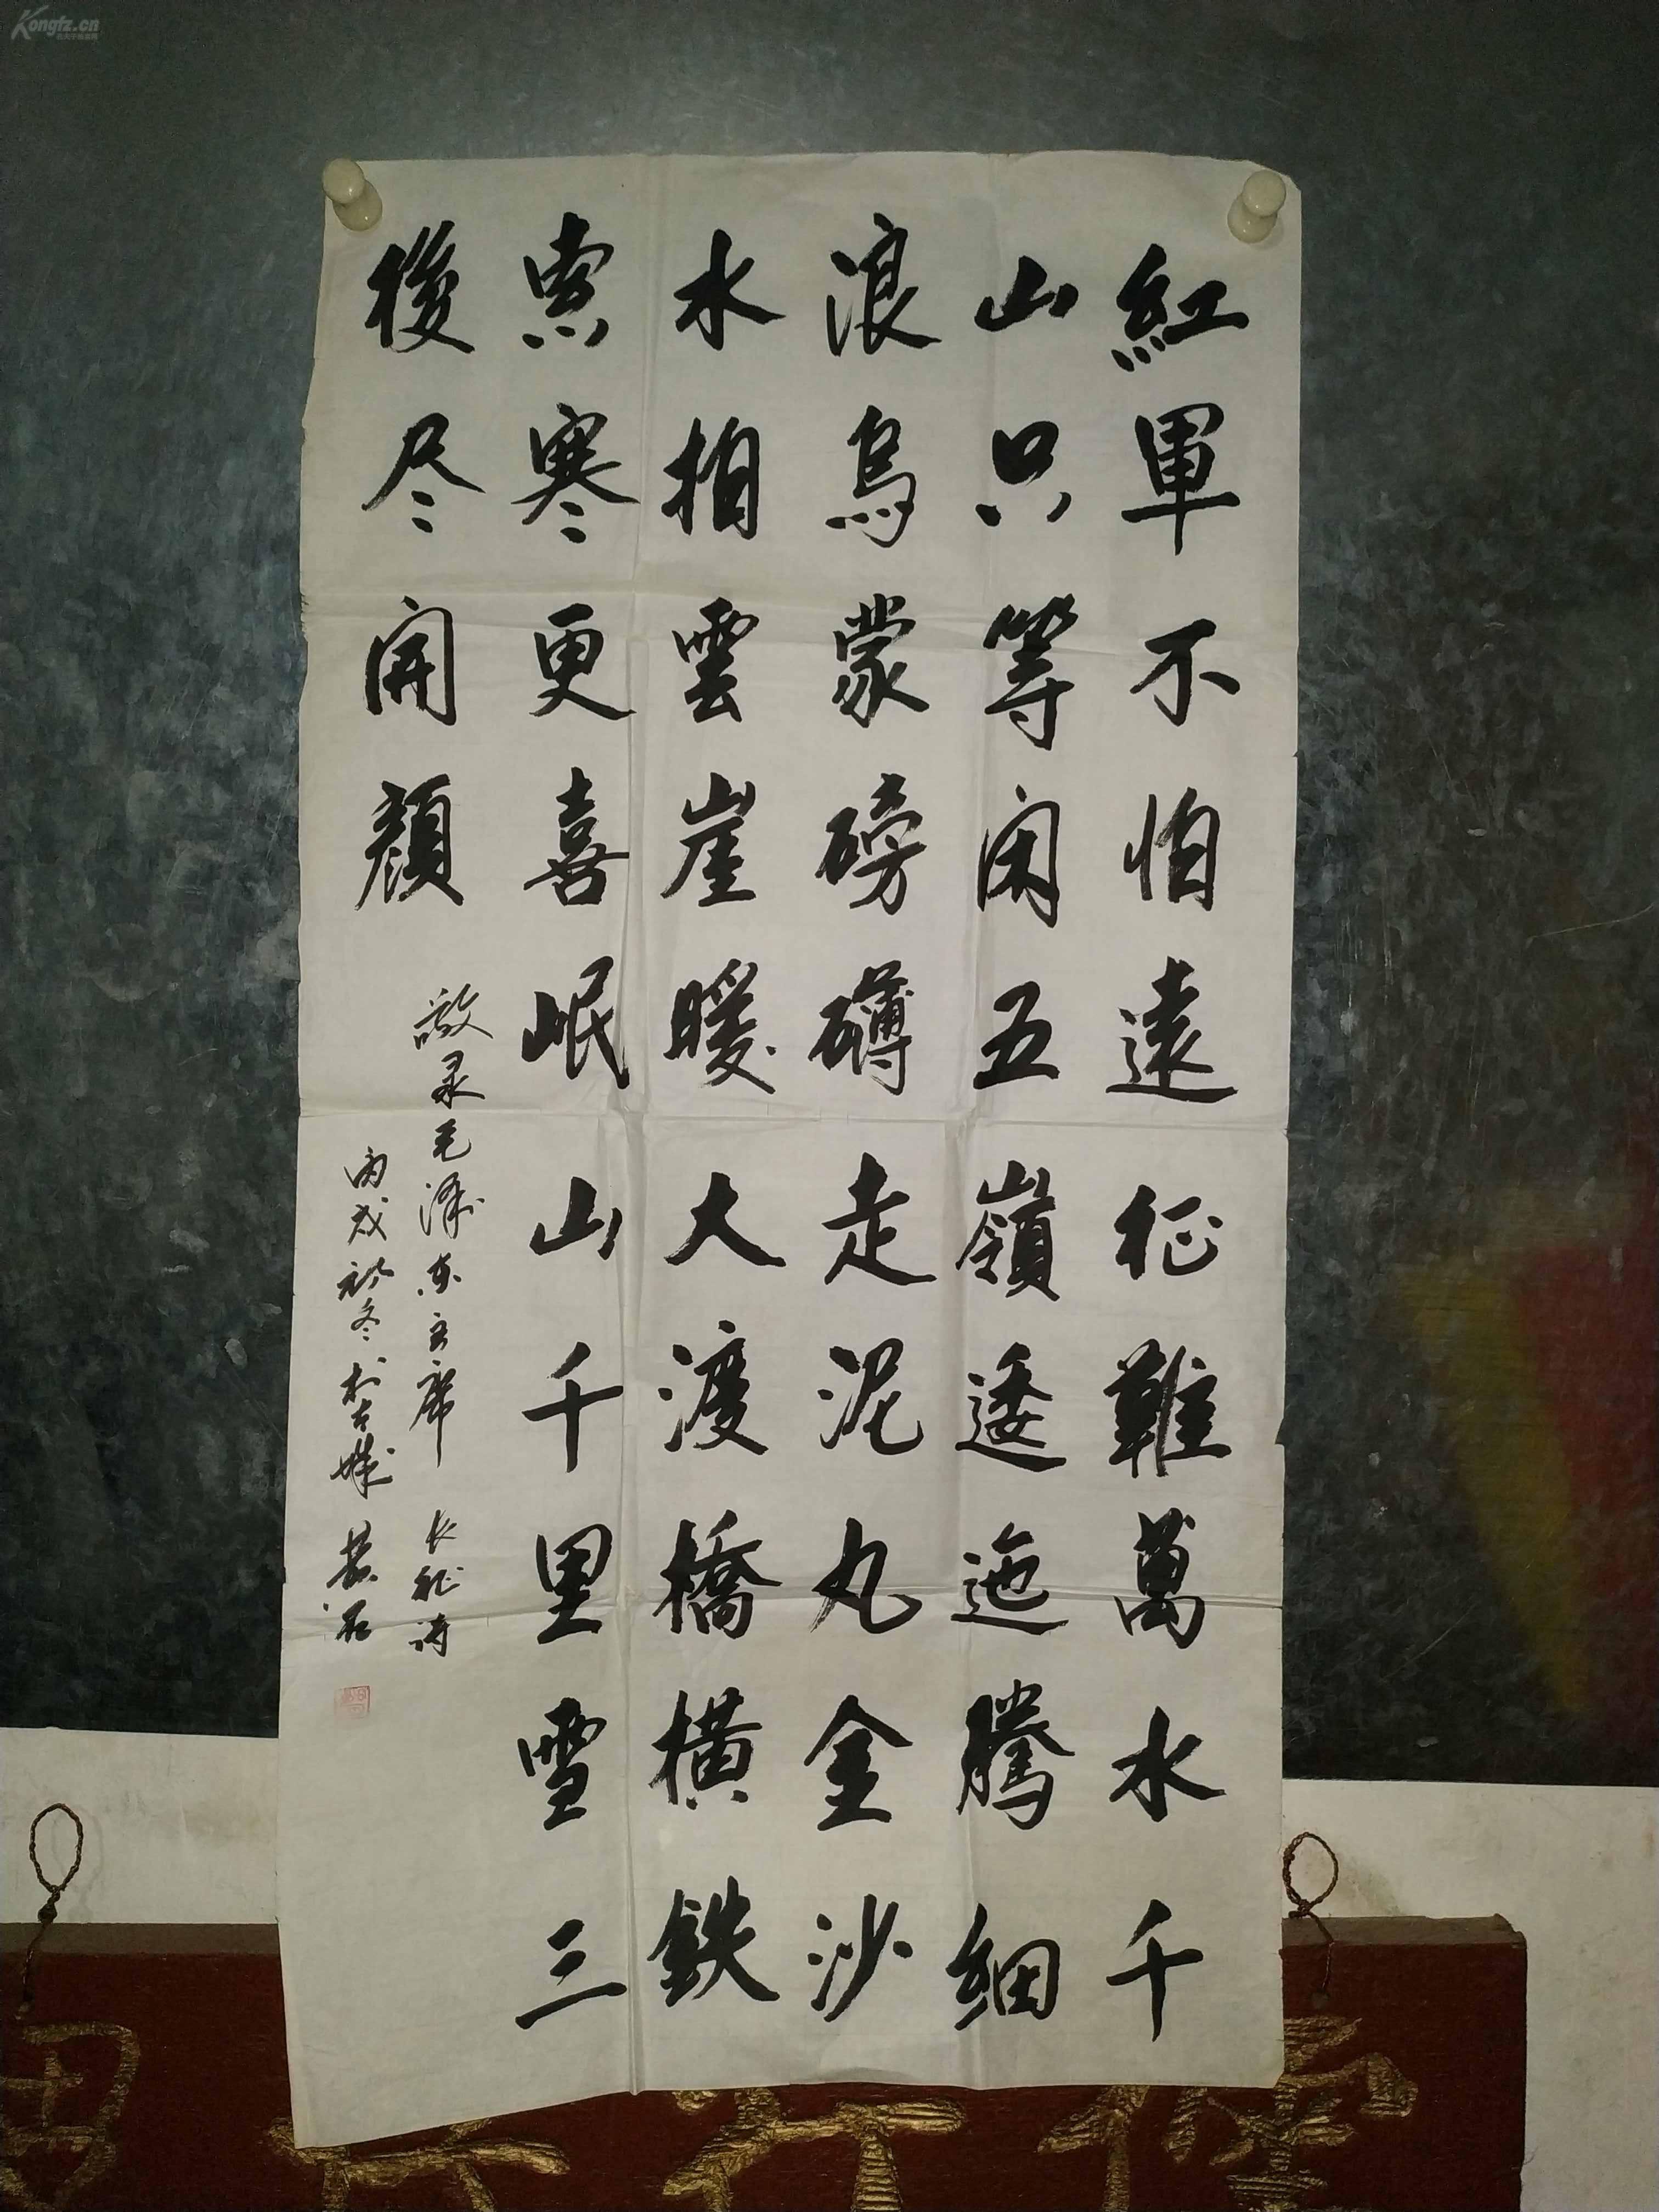 紅軍不怕遠征難萬水千
山只等闲五嶺逶迤騰細
浪烏蒙磅礴走泥丸金沙
水拍雲崖暖大渡橋横鉄
索寒更喜岷山千里雪三
後尽開顔
敬录毛泽东主席 长征诗
丙戌初冬於古城
Kongfz.cn